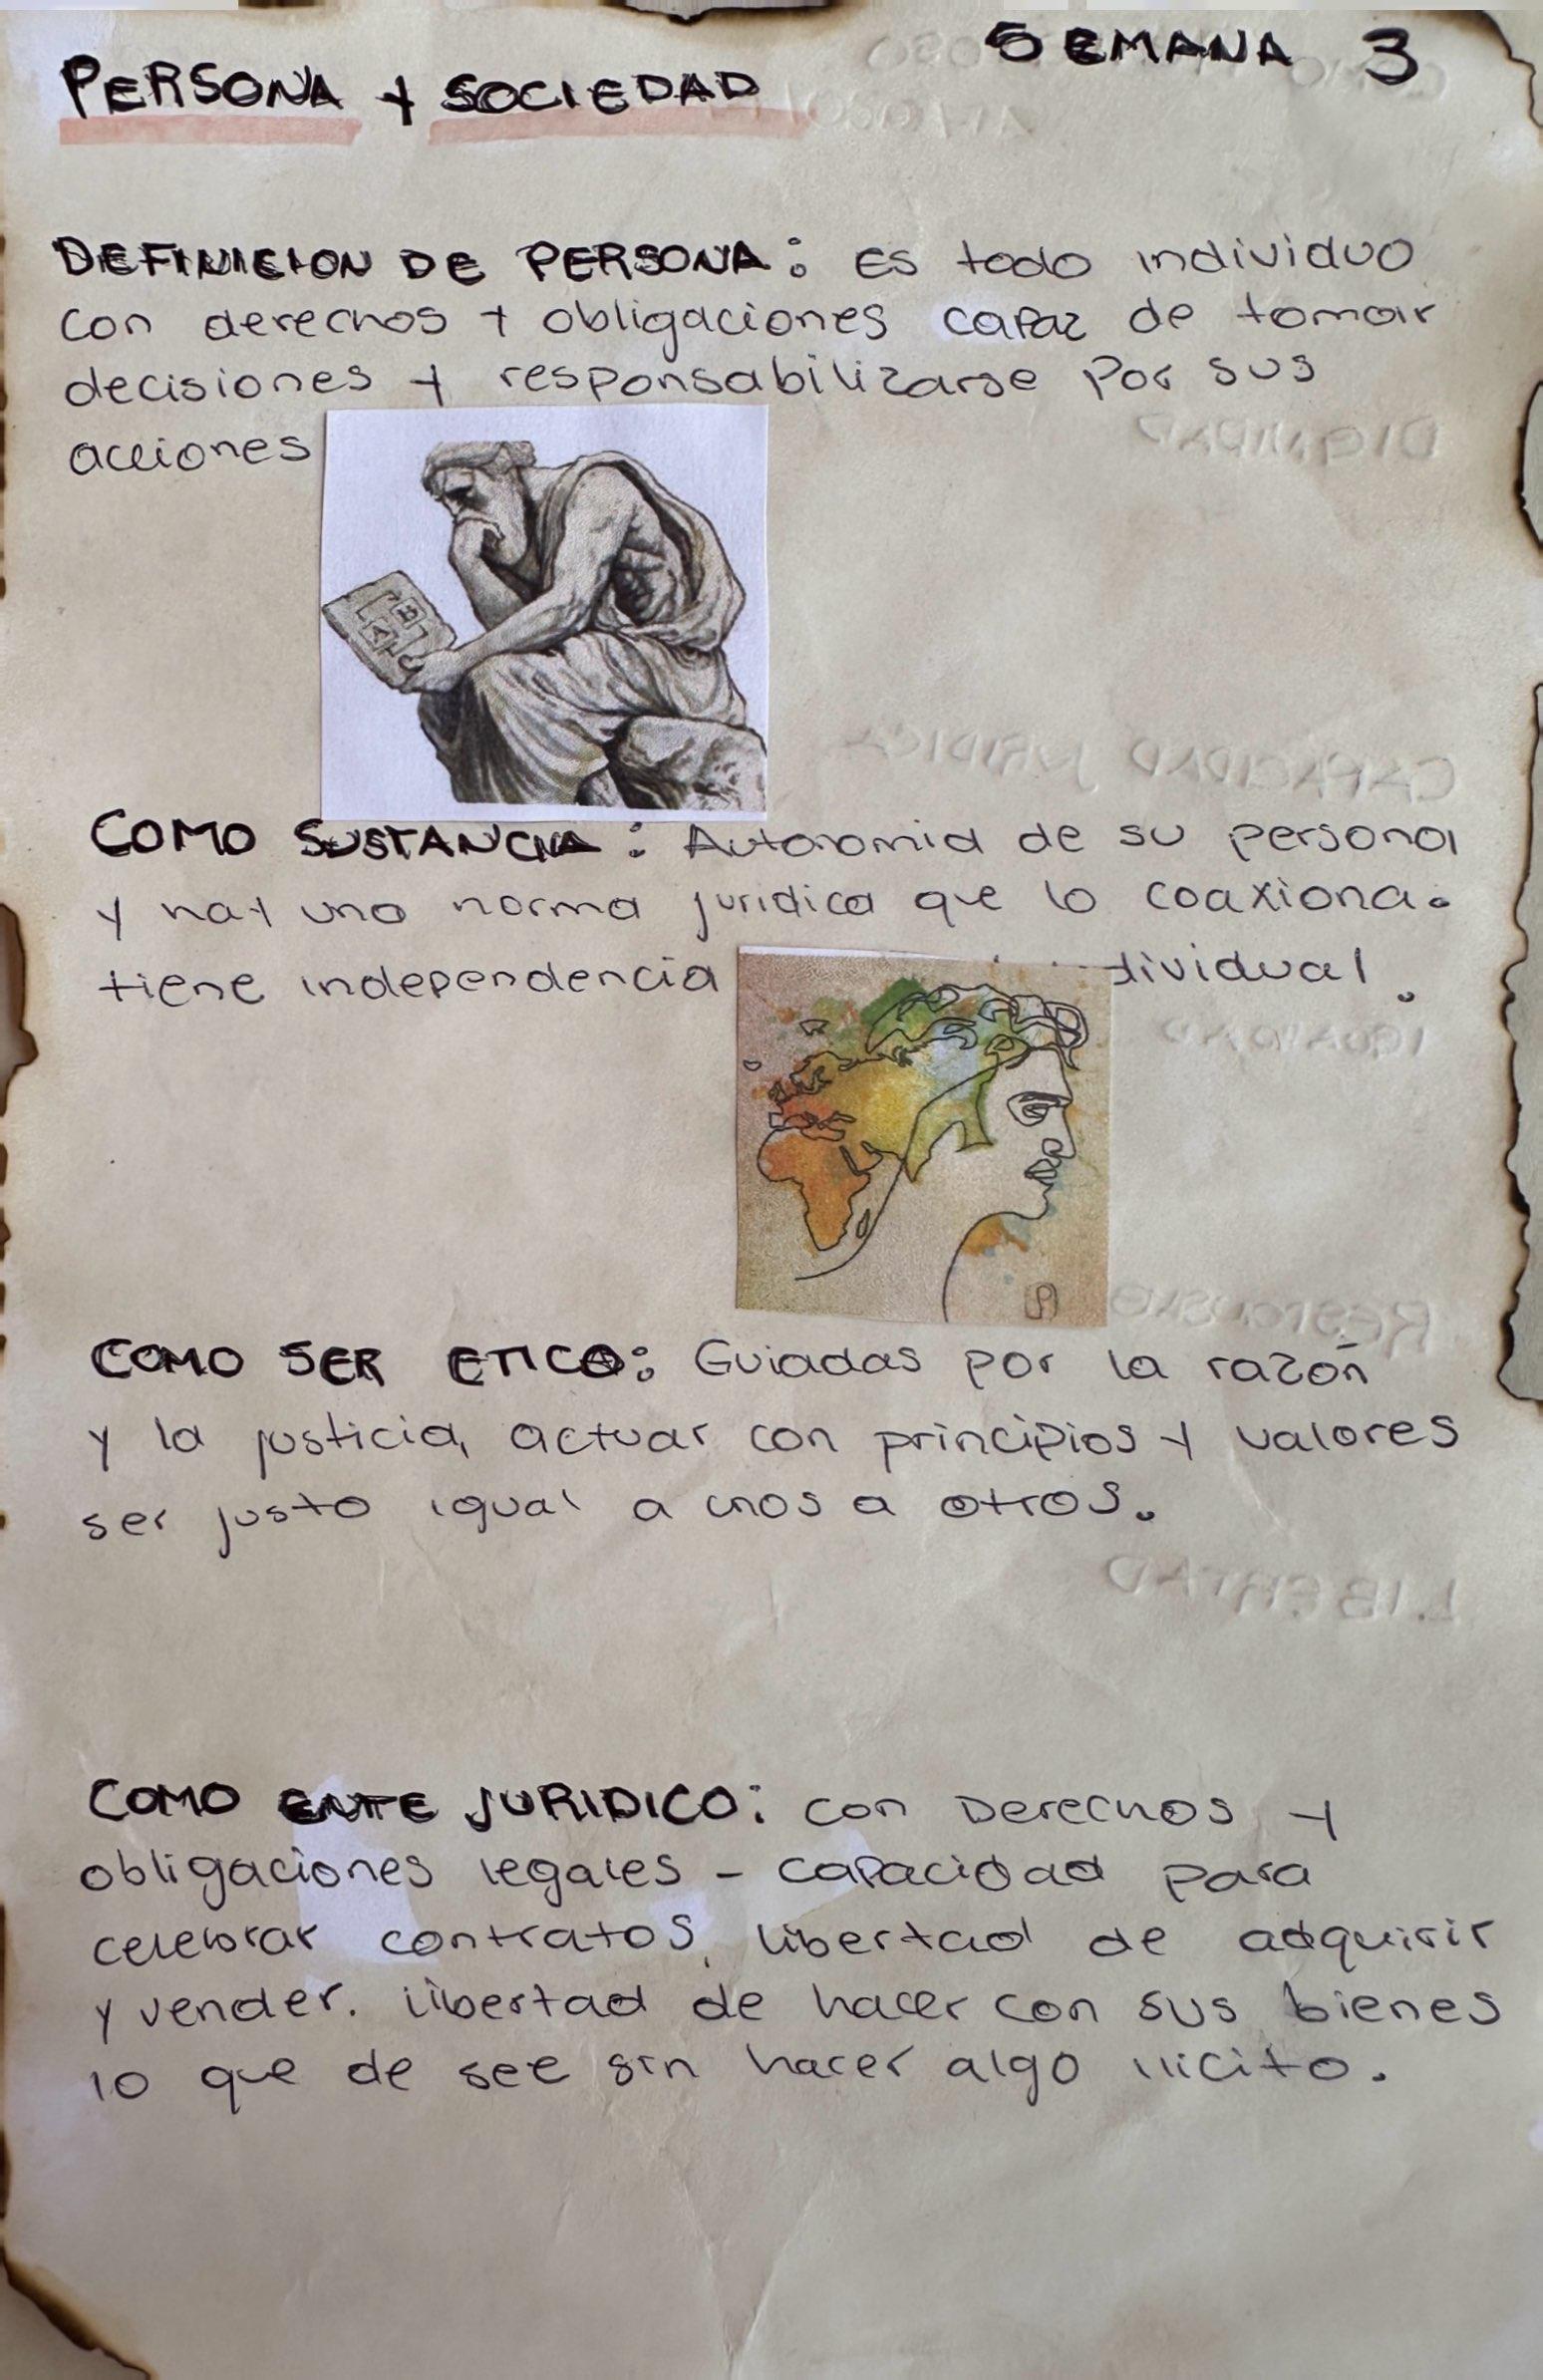 SEMANA 3
PERSONA Y SOCIEDAD
DEFINICION DE PERSONA: Es todo individuo
con derechos y obligaciones capaz de tomar
decisiones y responsabilizarse por sus
acciones
COMO SUSTANCIA: Autonomia de su persona
y hay una norma juridica que lo coaxiona.
tiene independencia dividual.
COMO SER ETICO: Guiadas por la razón
y la justicia, actuar con principios y valores
ser justo igual a unos a otros.
COMO ENTE JURIDICO: con Derechos y
obligaciones legales - capacidad para
celebrar contratos, libertad de adquirir
y vender. libertad de hacer con sus bienes
lo que de see sin hacer algo ilicito.
DIGNIDAD
CAPACIDAD JURIDICA
IGUALDAD
LIBERTAD